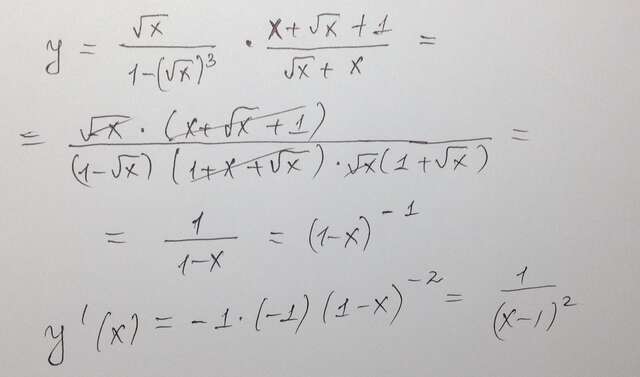 y = √x / (1-(√x)³) · (x+√x+1) / (√x+x) =
= √x · (x+√x+1) / ((1-√x)(1+x+√x)·√x(1+√x)) =
= 1 / (1-x) = (1-x)⁻¹
y'(x) = -1·(-1)(1-x)⁻² = 1 / (x-1)²